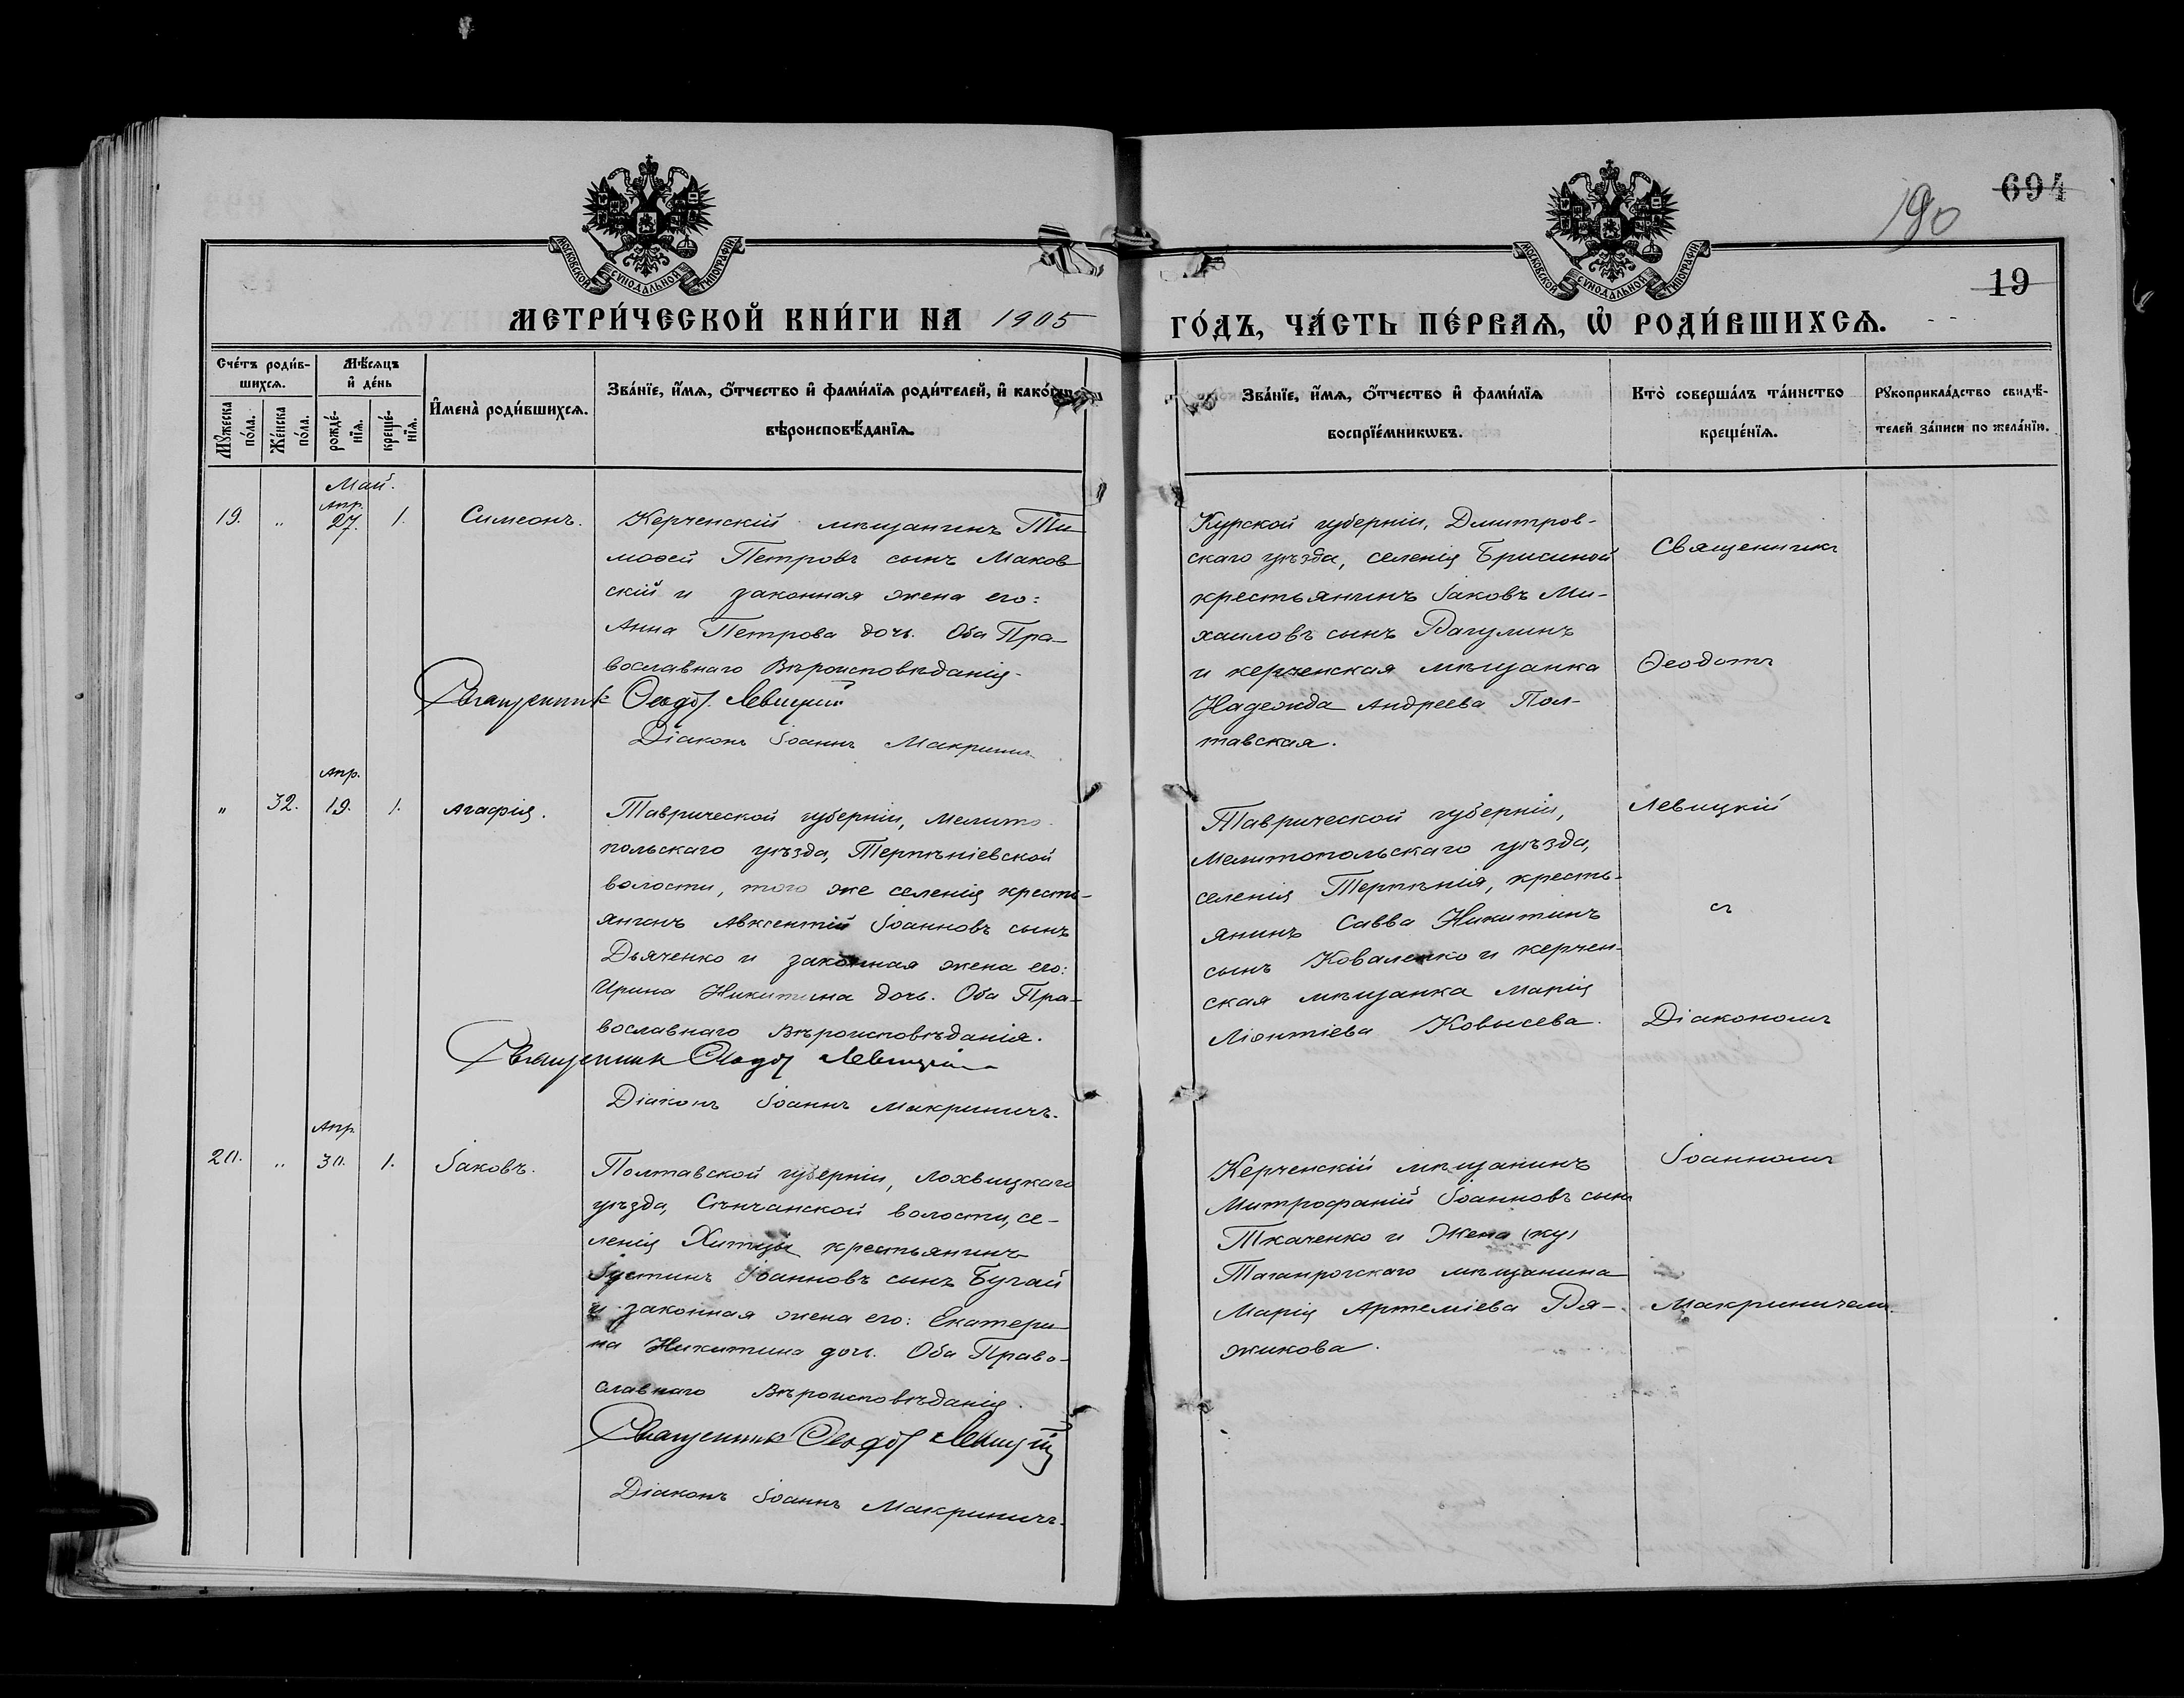 694
190
19
МОСКОВСКОЙ СУНОДАЛЬНОЙ ТИПОГРАФІИ
МОСКОВСКОЙ СУНОДАЛЬНОЙ ТИПОГРАФІИ
МЕТРИ́ЧЕСКОЙ КНИ́ГИ НА 1905
ГО́ДЪ, ЧА́СТЬ ПЕ́РВАѦ, Ѡ҆ РОДИ́ВШИХСѦ.
Сче́тъ роди́в-
шихсѧ.
Мѣ́сѧцъ
и҆ де́нь
Мꙋ́жеска
по́ла.
Же́нска
по́ла.
рожде́-
нїѧ.
креще́-
нїѧ.
И҆мена̀ роди́вшихсѧ.
Зва́нїе, и҆́мѧ, ѻ҆́тчество и҆ фами́лїѧ роди́телей, и҆ како́гѡ
вѣроисповѣ́данїѧ.
Зва́нїе, и҆́мѧ, ѻ҆́тчество и҆ фами́лїѧ
воспрїе́мникѡвъ.
Кто̀ соверша́лъ та́инство
креще́нїѧ.
Рꙋкоприкла́дство свидѣ́-
телей за́писи по жела́нїю.
Май.
Апр.
19. „ 27. 1. Симеонъ.
Керченскій мѣщанинъ Ти
моѳей Петровъ сынъ Маков
скій и законная жена его:
Анна Петрова дочь. Оба Пра-
вославнаго Вѣроисповѣданія.
Священникъ Ѳеодот. Левицкій
Діаконъ Іоаннъ Макриничъ
Курской губерніи, Дмитров-
скаго уѣзда, селенія
крестьянинъ Іаковъ Ми-
хаиловъ сынъ
и керченская мѣщанка
Надежда Андреева Пол-
тавская.
Священникъ
Ѳеодотъ
Апр.
„ 32. 19. 1. Агафія.
Таврической губерніи, Мелито-
польскаго уѣзда, Терпѣніевской
волости, того же селенія кресть-
янинъ Авксентій Іоанновъ сынъ
Дьяченко и законная жена его:
Ирина Никитина дочь. Оба Пра-
вославнаго Вѣроисповѣданія.
Священникъ Ѳеодот Левицкій
Діаконъ Іоаннъ Макриничъ.
Таврической губерніи,
Мелитопольскаго уѣзда,
селенія Терпѣнія, кресть-
янинъ Савва Никитинъ
сынъ Коваленко и керчен-
ская мѣщанка Марія
Ліонтіева
Левицкій
съ
Діакономъ
Апр.
20. „ 30. 1. Іаковъ.
Полтавской губерніи, Лохвицкаго
уѣзда, Сѣнчанской волости, се-
ленія Хитцы крестьянинъ
Іустинъ Іоанновъ сынъ Бугай
и законная жена его: Екатери-
на Никитина дочь. Оба Право-
славнаго Вѣроисповѣданія.
Священникъ Ѳеодот Левицкій
Діаконъ Іоаннъ Макриничъ.
Керченскій мѣщанинъ
Митрофаній Іоанновъ сынъ
Ткаченко и Жена (ку)
Таганрогскаго мѣщанина
Марія Артеміева
жикова.
Іоанномъ
Макриничемъ.